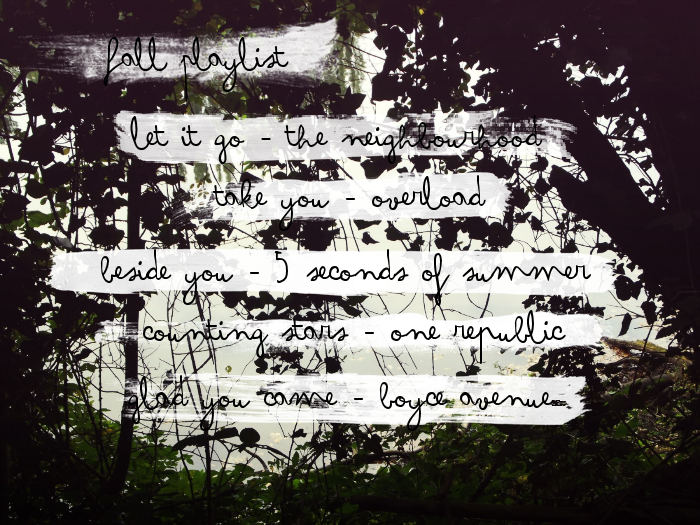 fall playlist
let it go - the neighbourhood
take you - overload
beside you - 5 seconds of summer
counting stars - one republic
glad you came - boyce avenue